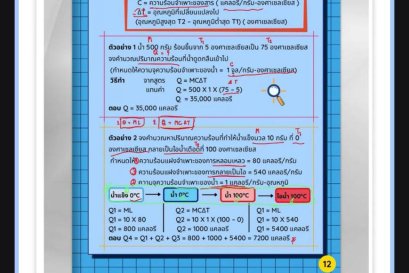 C = ความร้อนจำเพาะของสาร ( แคลอรี่/กรัม-องศาเซลเซียส )
ΔT = อุณหภูมิที่เปลี่ยนแปลงไป
(อุณหภูมิสูงสุด T2 - อุณหภูมิต่ำสุด T1) ( องศาเซลเซียส)
M T₁ T₂
ตัวอย่าง 1 น้ำ 500 กรัม ร้อนขึ้นจาก 5 องศาเซลเซียสเป็น 75 องศาเซลเซียส
Q = ?
จงคำนวณปริมาณความร้อนที่น้ำถูกดูดกลืนเข้าไป
C
(กำหนดให้ความจุความร้อนจำเพาะของน้ำ = 1 /กรัม-องศาเซลเซียส)
วิธีทำ จากสูตร Q = MCΔT
ΔT
แทนค่า Q = 500 X 1 X (75 - 5)
Q = 35,000 แคลอรี
ตอบ Q = 35,000 แคลอรี
Q = ML Q = MCΔT
M T₁
ตัวอย่าง 2 จงคำนวณหาปริมาณความร้อนที่ทำให้น้ำแข็งมวล 10 กรัม ที่ 0
องศาเซลเซียส กลายเป็นไอน้ำเดือดที่ 100 องศาเซลเซียส
กำหนดให้ ความร้อนแฝงจำเพาะของการหลอมเหลว = 80 แคลอรี/กรัม
ความร้อนแฝงจำเพาะของการกลายเป็นไอ = 540 แคลอรี/กรัม
ความจุความร้อนจำเพาะของน้ำ = 1 แคลอรี/กรัม-อุณหภูมิ
น้ำแข็ง 0°C น้ำ 0°C น้ำ 100°C ไอน้ำ 100°C
Q1 = ML Q2 = MCΔT Q1 = ML
Q1 = 10 X 80 Q2 = 10 X 1 X (100 - 0) Q1 = 10 X 540
Q1 = 800 แคลอรี Q2 = 1000 แคลอรี Q1 = 5400 แคลอรี
ตอบ Q4 = Q1 + Q2 + Q3 = 800 + 1000 + 5400 = 7200 แคลอรี
12